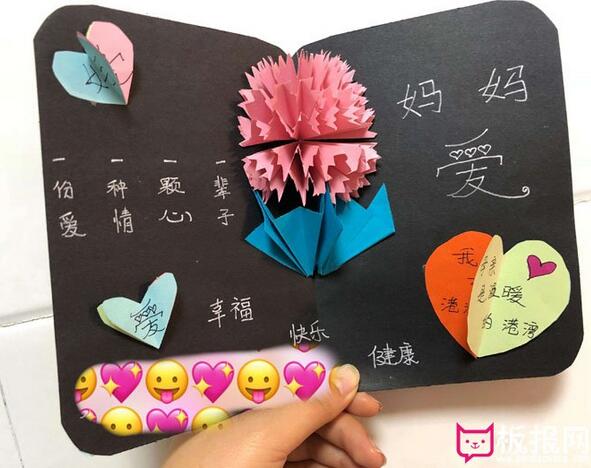 一份爱
一种情
一颗心
一辈子
爱
幸福
快乐
健康
妈妈
爱
我
港
暖
的港湾
板报网